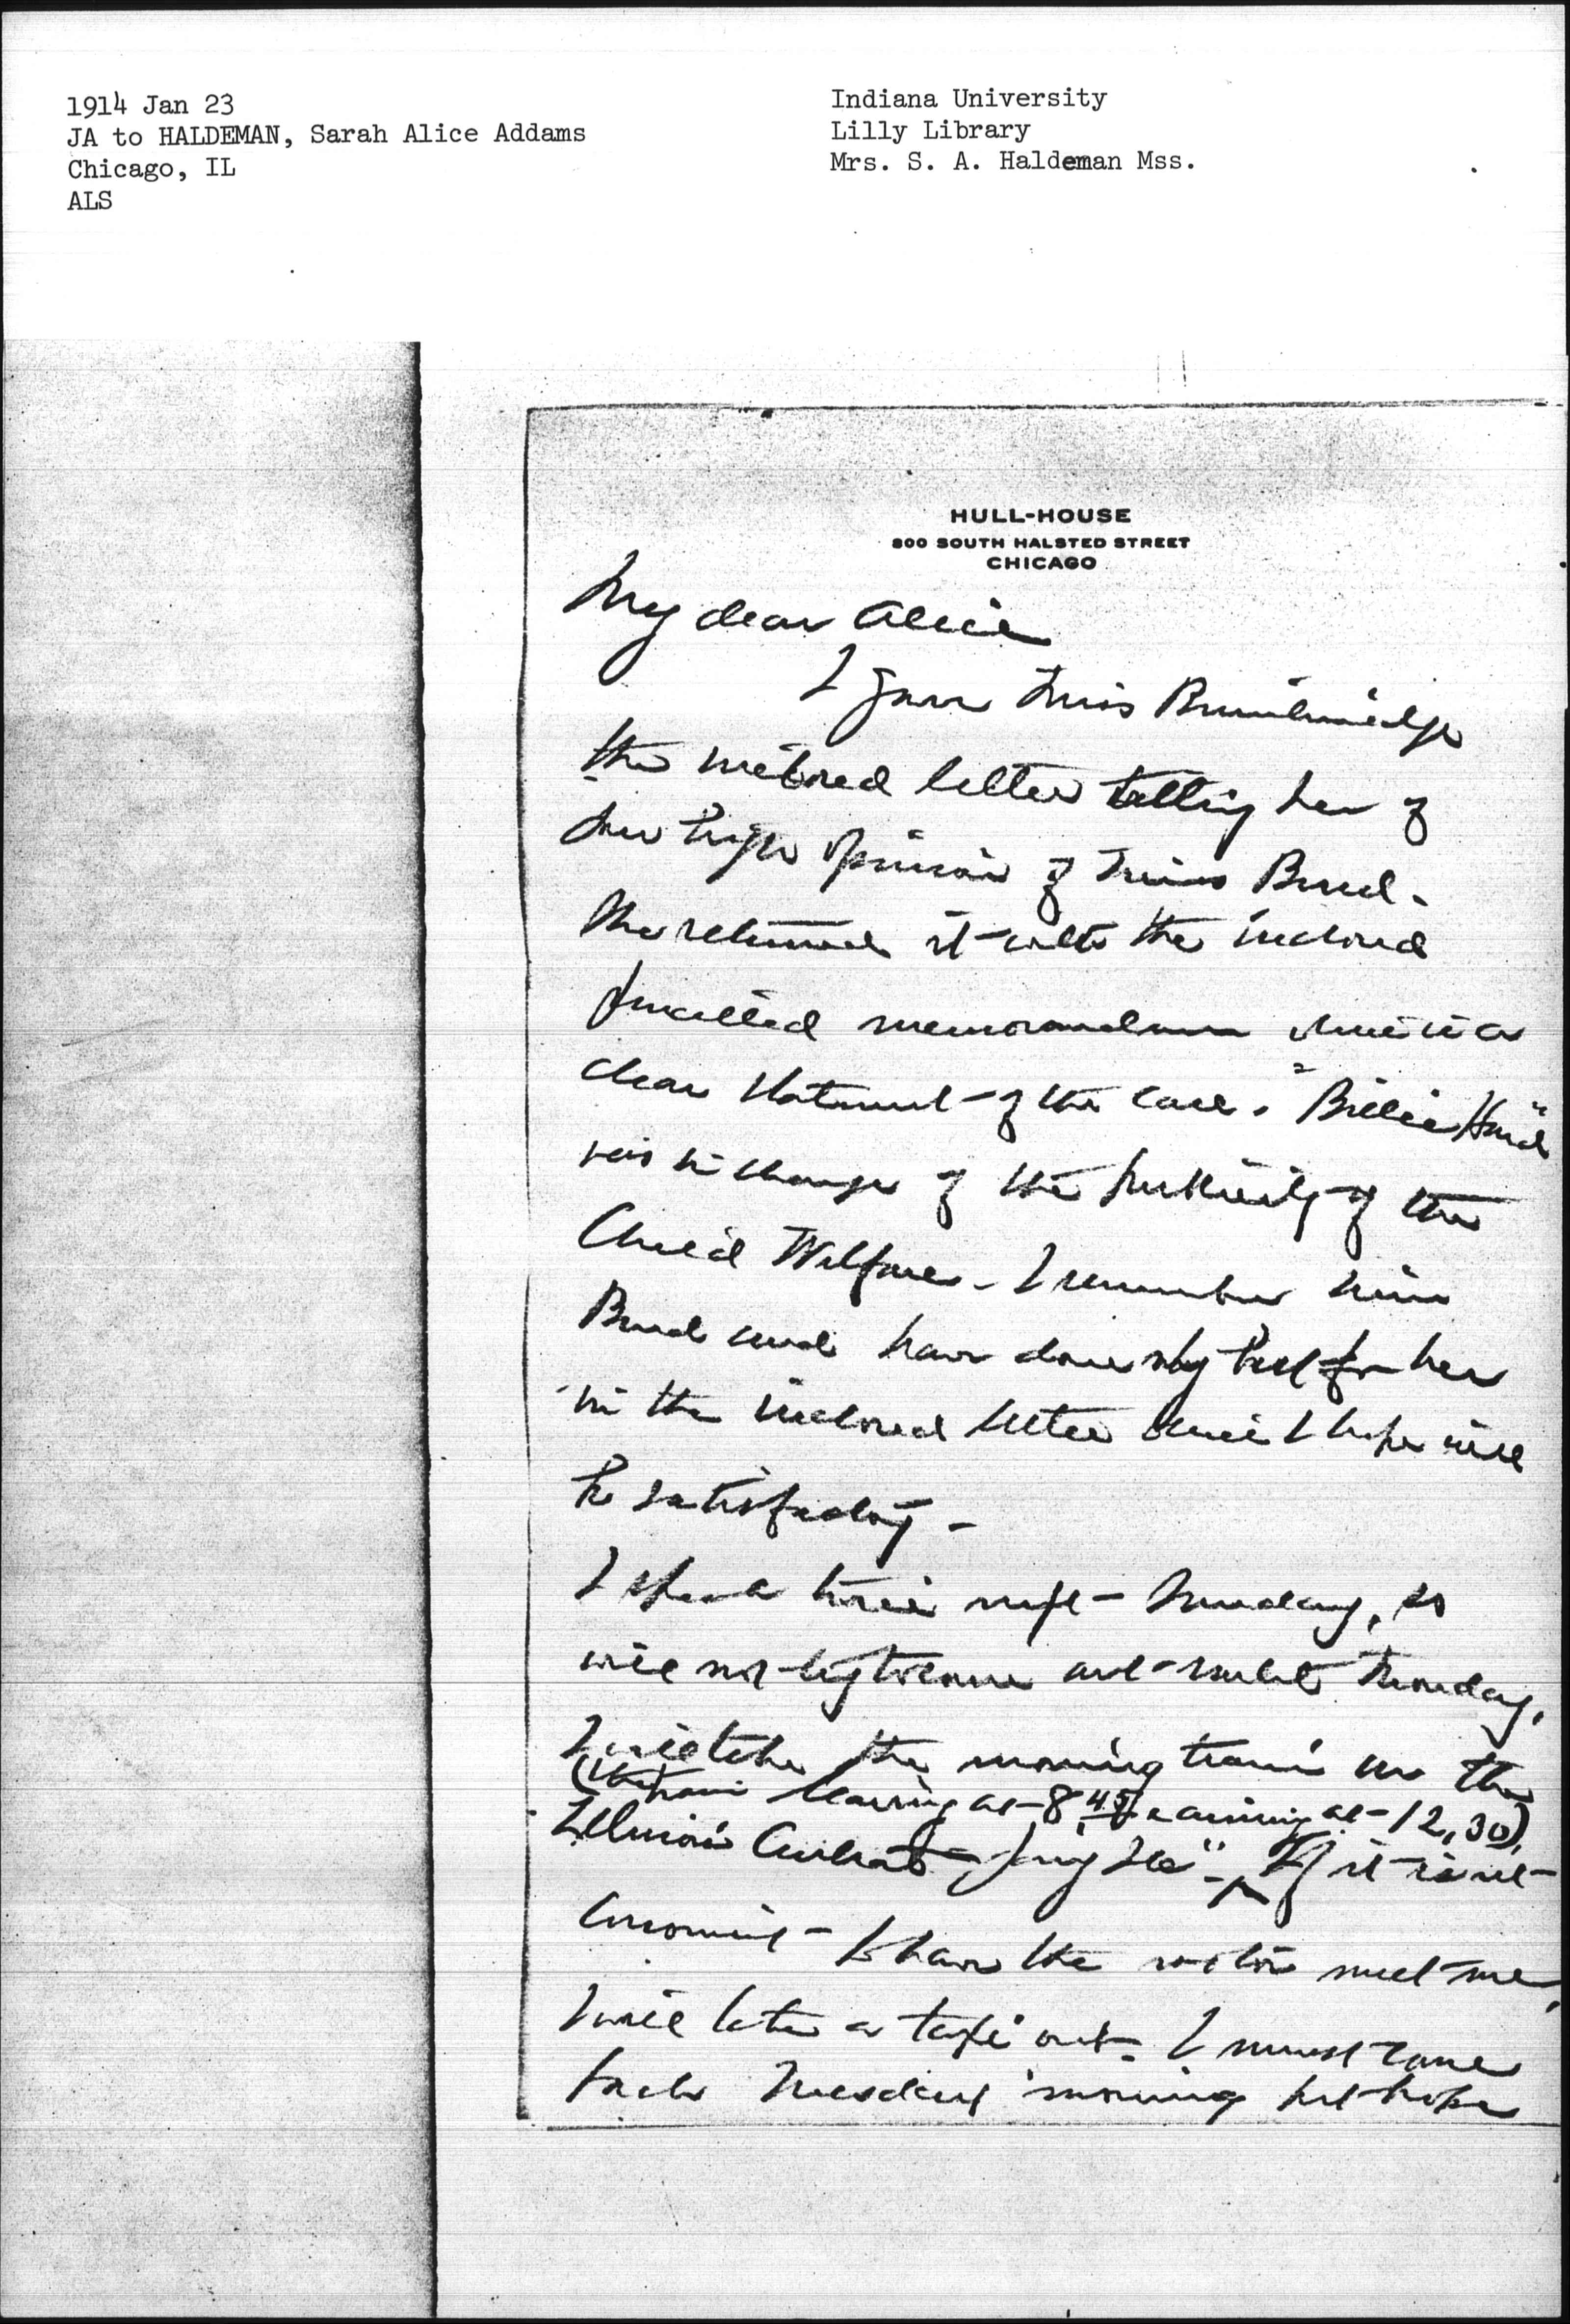 1914 Jan 23
JA to HALDEMAN, Sarah Alice Addams
Chicago, IL
ALS
Indiana University
Lilly Library
Mrs. S. A. Haldeman Mss.
HULL-HOUSE
800 SOUTH HALSTED STREET
CHICAGO
My dear Alice
I gave Miss Breckinridge
the inclosed letter telling her of
her high opinion of Miss Burd.
She returned it with the inclosed
memorandum which is a
clear statement of the case. "Billie Hard"
was in charge of the publicity of the
Child Welfare - I remember Miss
Burd and have done my best for her
in the inclosed letter which I hope will
be satisfactory -
I speak twice next Sunday, so
will not try to come out until Monday.
I will take the morning train on the
(the train leaving at 8.45 & arriving at 12.30)
Illinois Central - If it is not
convenient to have the motor meet me,
I will take a taxi out - I must come
back Tuesday morning but hope